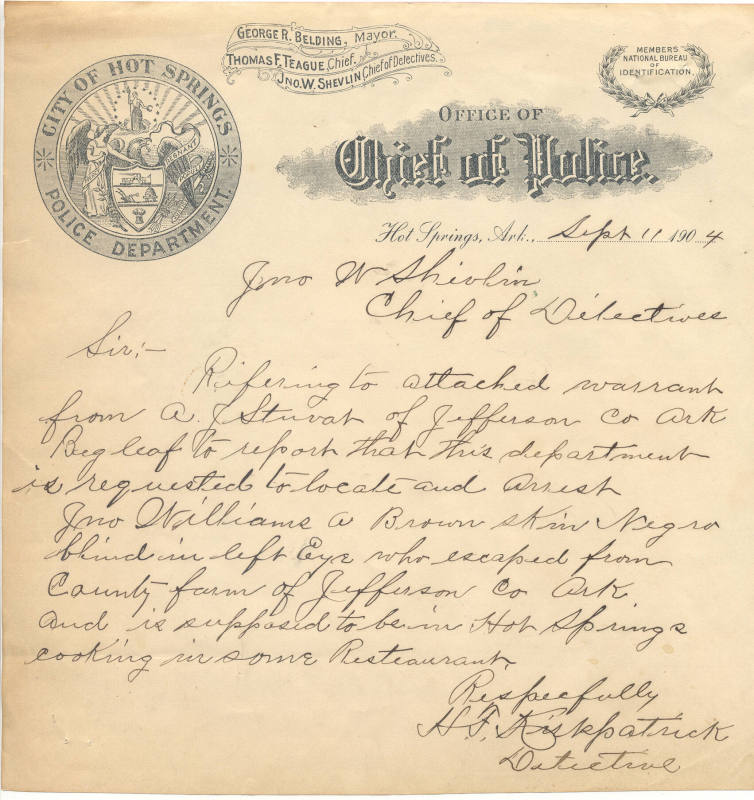 GEORGE R. BELDING, Mayor.
THOMAS F. TEAGUE, Chief.
JNO. W. SHEVLIN Chief of Detectives.
MEMBERS
NATIONAL BUREAU
OF
IDENTIFICATION.
CITY OF HOT SPRINGS
POLICE DEPARTMENT.
OFFICE OF
Chief of Police.
Hot Springs, Ark., Sept 11 1904
Jno W Shevlin
Chief of Detectives
Sir:-
Refering to attached warrant
from A. J Stuvat of Jefferson Co Ark
Beg leaf to report that this department
is requested to locate and arrest
Jno Williams a Brown skin Negro
blind in left Eye who escaped from
County farm of Jefferson Co Ark
and is supposed to be in Hot Springs
cooking in some Restaurant.
Respecfully
H. F. Kirkpatrick
Detective